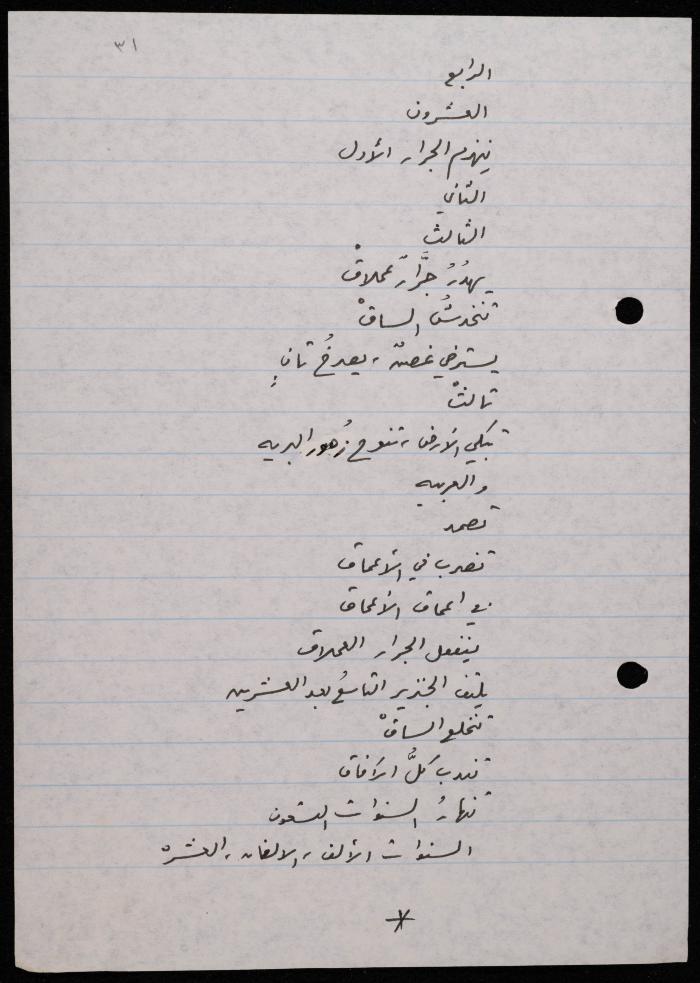 ٣١
الرابع
العشرون
ينهزم الجرار الأول
الثاني
الثالث
يهدُرُ جرَّارٌ عملاقْ
تنخدشُ الساقْ
يسترخي غصنٌ، يصدحُ ثانٍ
ثالثْ
تبكي الأرض، تنوح زُهور البريه
والعربيه
تصمد
تضرب في الأعماق
في اعماق الأعماق
ينفعل الجرار العملاق
يلتف الجنزير التاسعُ بعد العشرين
تنخلع الساقْ
تندب كلُّ الآفاق
تنهارُ السنوات التسعون
السنوات الألف، الألفان، العشرهْ